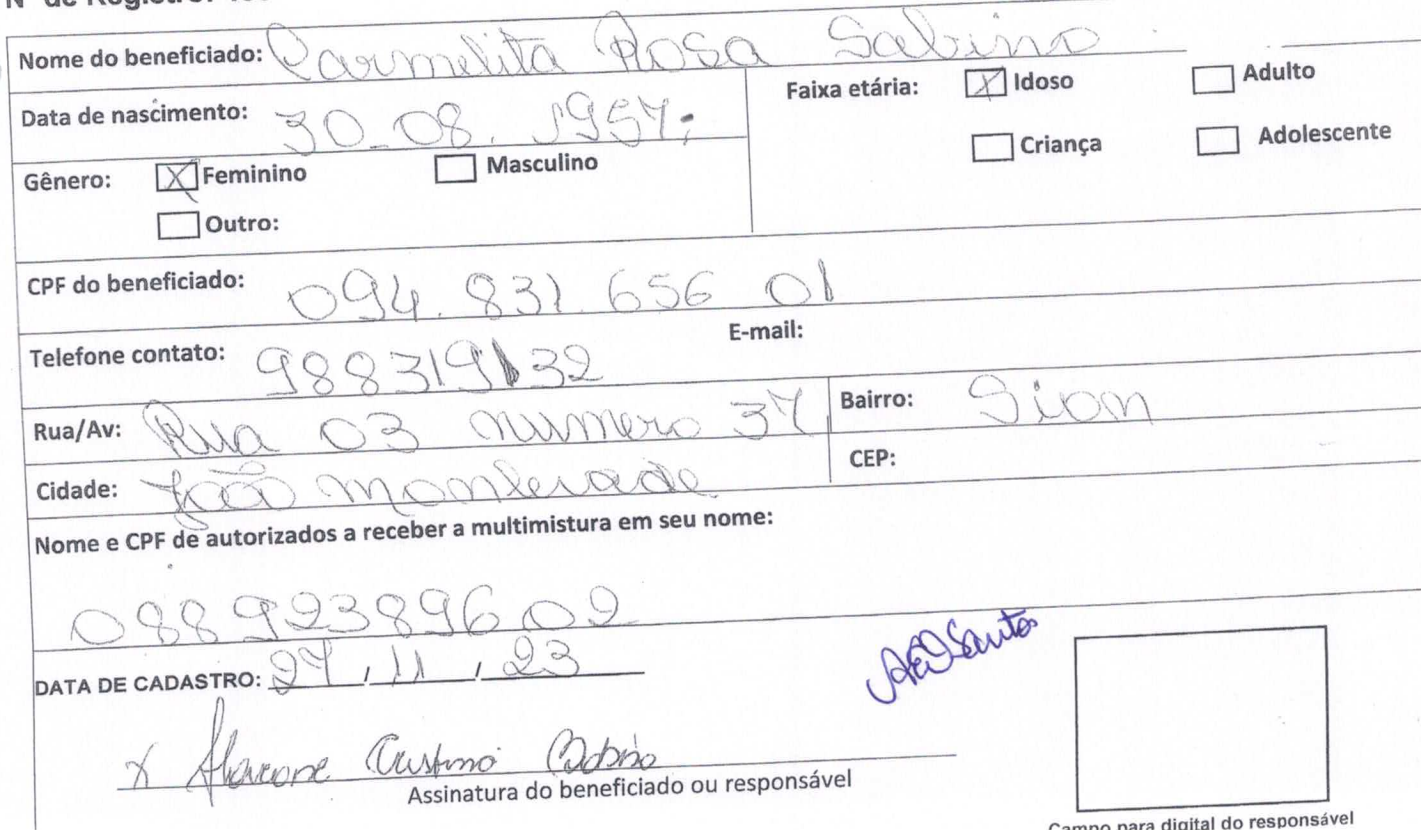 Nº de Registro:
Nome do beneficiado: Carmelita Rosa Sabino
Data de nascimento: 30_08.1957.
Faixa etária: [X] Idoso [ ] Adulto
[ ] Criança [ ] Adolescente
Gênero: [X] Feminino [ ] Masculino
[ ] Outro:
CPF do beneficiado: 094.831.656 01
Telefone contato: 988319132 E-mail:
Rua/Av: Rua 03 numero 37 Bairro: Sion
Cidade: João monlevade CEP:
Nome e CPF de autorizados a receber a multimistura em seu nome:
08892389602
DATA DE CADASTRO: 27/11/23
Santos
X
Assinatura do beneficiado ou responsável
Campo para digital do responsável